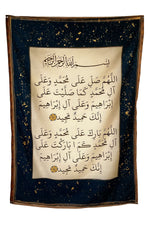 بسم الله الرحمن الرحيم
اللَّهُمَّ صَلِّ عَلَى مُحَمَّدٍ وَعَلَى
آلِ مُحَمَّدٍ كَمَا صَلَّيْتَ عَلَى
إِبْرَاهِيمَ وَعَلَى آلِ إِبْرَاهِيمَ
إِنَّكَ حَمِيدٌ مَجِيدٌ
اللَّهُمَّ بَارِكْ عَلَى مُحَمَّدٍ وَعَلَى
آلِ مُحَمَّدٍ كَمَا بَارَكْتَ عَلَى
إِبْرَاهِيمَ وَعَلَى آلِ إِبْرَاهِيمَ
إِنَّكَ حَمِيدٌ مَجِيدٌ